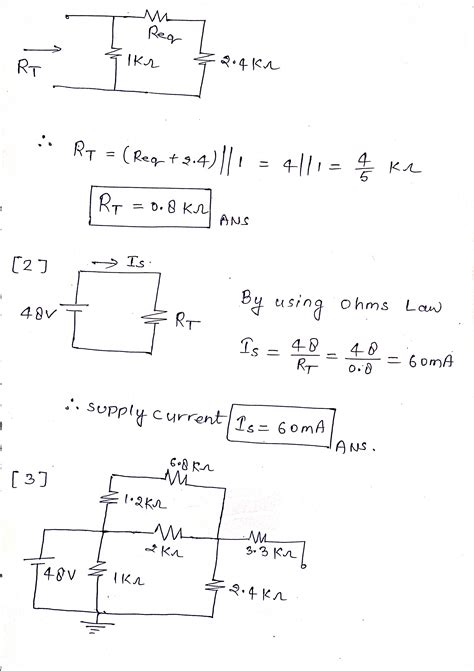 Req
RT
1KΩ
2.4KΩ
∴ RT = (Req + 2.4) || 1 = 4 || 1 = 4/5 KΩ
RT = 0.8 KΩ ANS
[2]
→ Is.
48V
RT
By using Ohms Law
Is = 48/RT = 48/0.8 = 60mA
∴ Supply current Is = 60mA ANS.
[3]
6.8 KΩ
1.2KΩ
2KΩ
3.3 KΩ
48V
1KΩ
2.4KΩ